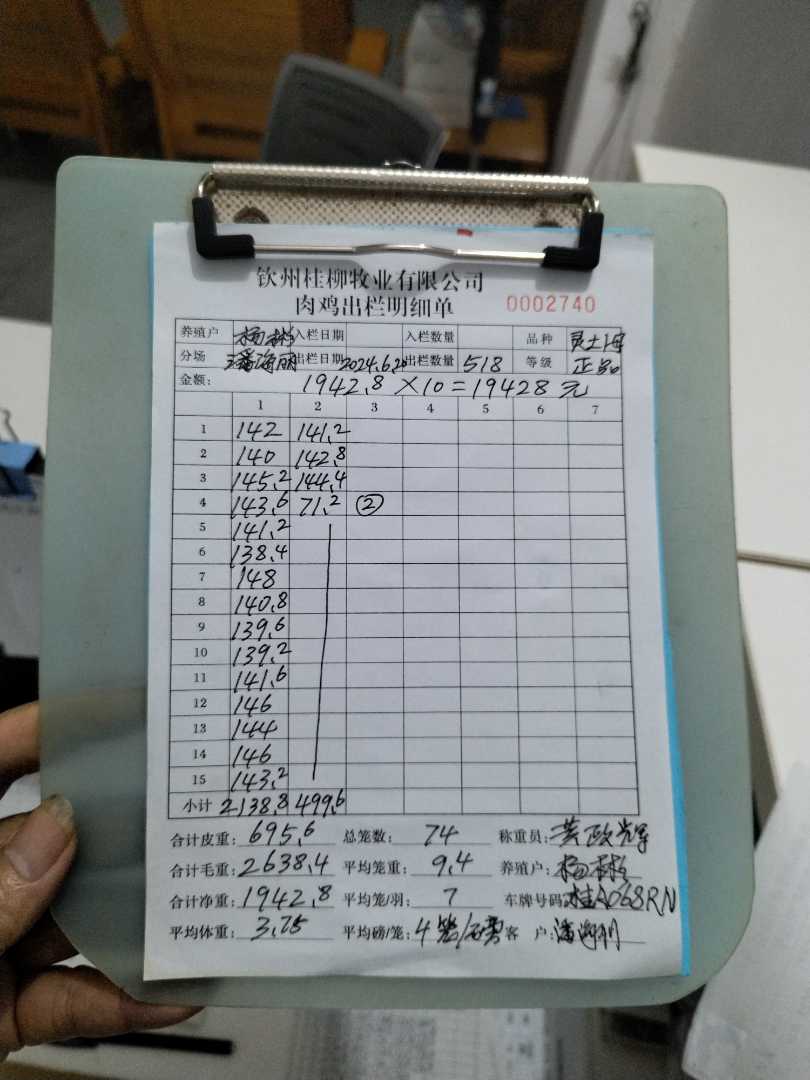 钦州桂柳牧业有限公司
肉鸡出栏明细单 0002740
养殖户 杨彬 入栏日期 入栏数量 品种 灵土
分场 潘海丽 出栏日期 2024.6.20 出栏数量 518 等级 正品
金额: 1942.8×10=19428元
1 2 3 4 5 6 7
1 142 141.2
2 140 142.8
3 145.2 144.4
4 143.6 71.2 ②
5 141.2
6 138.4
7 148
8 140.8
9 139.6
10 139.2
11 141.6
12 146
13 144
14 146
15 143.2
小计 2138.8 499.6
合计皮重: 695.6 总笼数: 74 称重员: 黄政辉
合计毛重: 2638.4 平均笼重: 9.4 养殖户: 杨彬
合计净重: 1942.8 平均笼/羽: 7 车牌号码: 桂A068RN
平均体重: 3.75 平均磅/笼: 4笼/磅 客 户: 潘